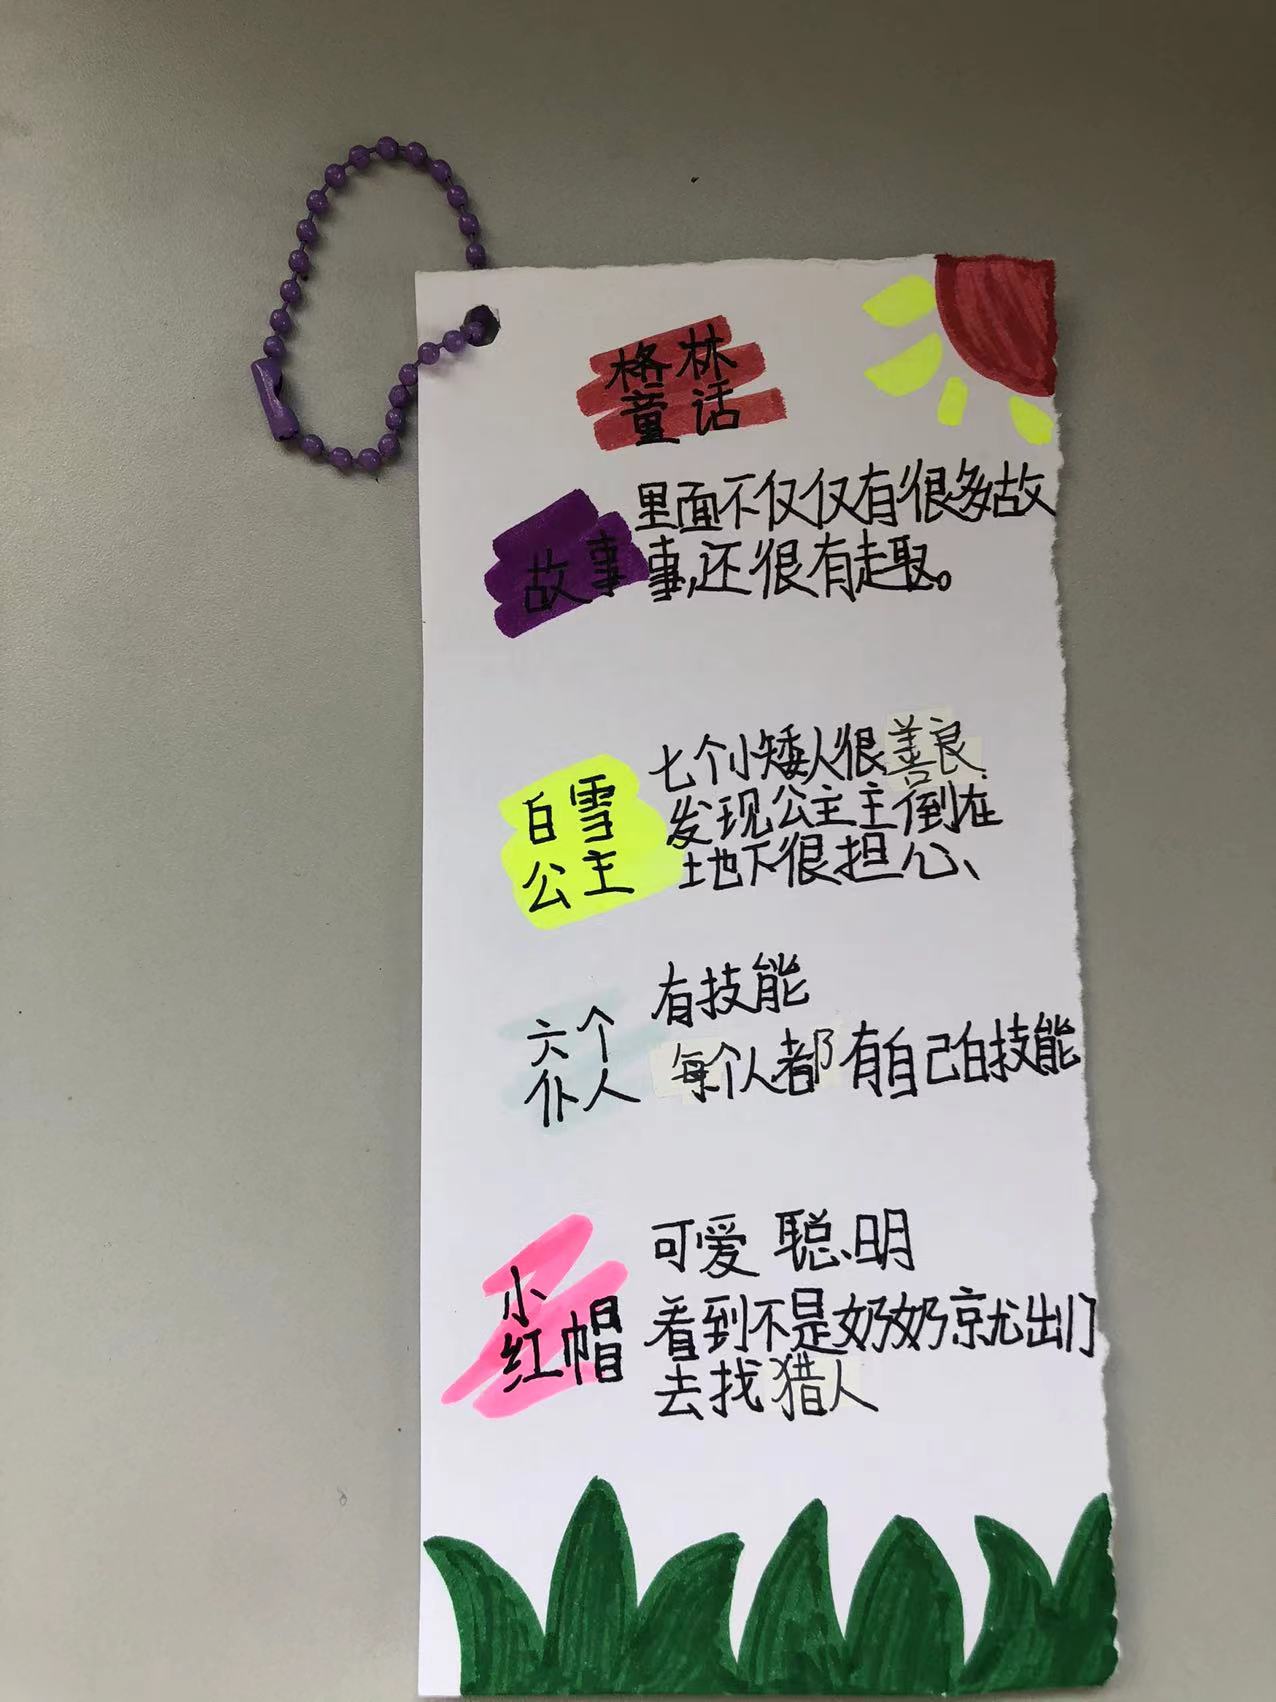 格林
童话
故事
里面不仅仅有很多故
事,还很有趣。
白雪
公主
七个小矮人很善良
发现公主主倒在
地下很担心、
六个
仆人
有技能
每个人都有自己白技能
小
红帽
可爱 聪明
看到不是奶奶就出门
去找猎人